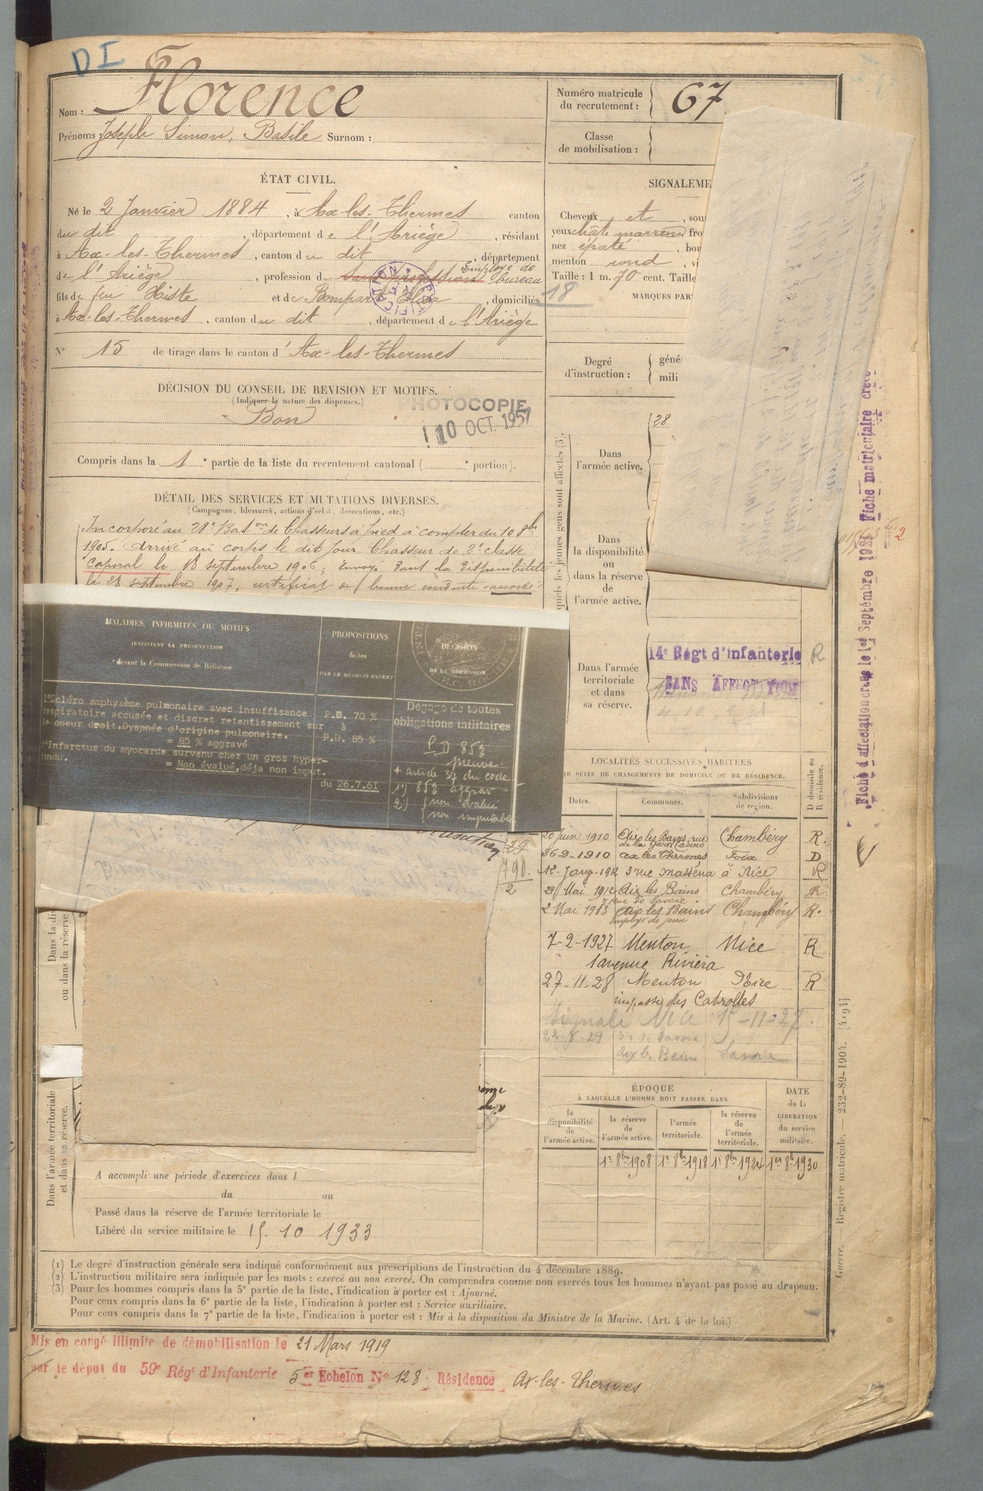 DI
Nom : Florence
Prénoms : Joseph Simon, Basile Surnom :
Numéro matricule
du recrutement : 67
Classe
de mobilisation :
ÉTAT CIVIL.
Né le 2 Janvier 1884, à Ax-les-Thermes canton
du dit, département de l'Ariège, résidant
à Ax-les-Thermes, canton du dit, département
de l'Ariège, profession de Sans profession Employé de bureau
fils de feu Xiste et de Bompart, domiciliés
à Ax-les-Thermes, canton du dit, département de l'Ariège
N° 15 de tirage dans le canton d'Ax-les-Thermes
SIGNALEME
Cheveux et, sou
yeux marrons fro
nez épaté, bou
menton rond, vi
Taille : 1 m. 70 cent. Taille
18
MARQUES PAR
Degré
d'instruction :
géné
mili
DÉCISION DU CONSEIL DE REVISION ET MOTIFS.
(Indiquer la nature des dispenses.)
Bon
PHOTOCOPIE
10 OCT. 1957
Compris dans la 1e partie de la liste du recrutement cantonal (e portion).
DÉTAIL DES SERVICES ET MUTATIONS DIVERSES.
(Campagnes, blessures, actions d'éclat, décorations, etc.)
Incorporé au 28e Baton de Chasseurs à pied à compter du 10 8bre
1905. Arrivé au corps le dit jour. Chasseur de 2e classe
Caporal le 18 septembre 1906; Envoyé dans la disponibilité
le 28 septembre 1907; certificat de bonne conduite accordé
Dans
l'armée active.
28
Dans
la disponibilité
ou
dans la réserve
de
l'armée active.
Dans l'armée
territoriale
et dans
sa réserve.
14e Régt d'infanterie R
SANS AFFECTATION
Fiche d'affectation créée le 1er Septembre 1921 Fiche matriculaire créée
MALADIES, INFIRMITÉS OU MOTIFS
JUSTIFIANT LA PRÉSENTATION
devant la Commission de Réforme
PROPOSITIONS
faites
PAR LE MÉDECIN-EXPERT
DÉCISION
DE LA COMMISSION
1°Scléro emphysème pulmonaire avec insuffisance
respiratoire accusée et discret retentissement sur
le coeur droit.Dyspnée d'origine pulmonaire.
= 85 % aggravé
2°Infarctus du myocarde survenu chez un gros hyper-
tendu.
= Non évalué,déja non imput.
P.D. 70 %
à
P.D. 85 %
du 26.7.61
Dégagé de toutes
obligations militaires
P D 85%
preuve
+ article 37 du code
1°) 85% aggrav
2°) non évalué
non imputable
LOCALITÉS SUCCESSIVES HABITÉES
PAR SUITE DE CHANGEMENTS DE DOMICILE OU DE RÉSIDENCE.
Dates. Communes. Subdivisions de région. D domicile ou R résidence.
20 Juin 1910 Aix les Bains, rue Chambéry R.
26-9-1910 Ax les Thermes Foix D
12 Janv 1912 3 rue Masséna à Nice R
29 Mai 1912 Aix les Bains Chambéry R
rue de Savoie
2 Mai 1913 Aix les Bains Chambéry R.
employé de jeux
7-2-1927 Menton Nice R
1 avenue Riviera
27-11-28 Menton Nice R
impasse des Cabrolles
22-8-29 Savoie
Aix les Bains Savoie
ÉPOQUE
À LAQUELLE L'HOMME DOIT PASSER DANS
la
disponibilité
de
l'armée active.
la réserve
de
l'armée active.
l'armée
territoriale.
la réserve
de
l'armée
territoriale.
DATE
de la
LIBÉRATION
du service
militaire.
1er 8bre 1908 1er 8bre 1918 1er 8bre 1924 1er 8bre 1930
Dans la dis
ou dans la réserve
Dans l'armée territoriale
et dans sa réserve.
A accompli une période d'exercices dans l
du au
Passé dans la réserve de l'armée territoriale le
Libéré du service militaire le 15. 10 1933
(1) Le degré d'instruction générale sera indiqué conformément aux prescriptions de l'instruction du 4 décembre 1889.
(2) L'instruction militaire sera indiquée par les mots : exercé ou non exercé. On comprendra comme non exercés tous les hommes n'ayant pas passé au drapeau.
(3) Pour les hommes compris dans la 5e partie de la liste, l'indication à porter est : Ajourné.
Pour ceux compris dans la 6e partie de la liste, l'indication à porter est : Service auxiliaire.
Pour ceux compris dans la 7e partie de la liste, l'indication à porter est : Mis à la disposition du Ministre de la Marine. (Art. 4 de la loi.)
Guerre. — Registre matricule. — 232-89-1904. [4194]
Mis en congé illimité de démobilisation le 21 Mars 1919
par le dépôt du 59e Régt d'Infanterie 5er Echelon N° 128 Résidence Ax-les-Thermes